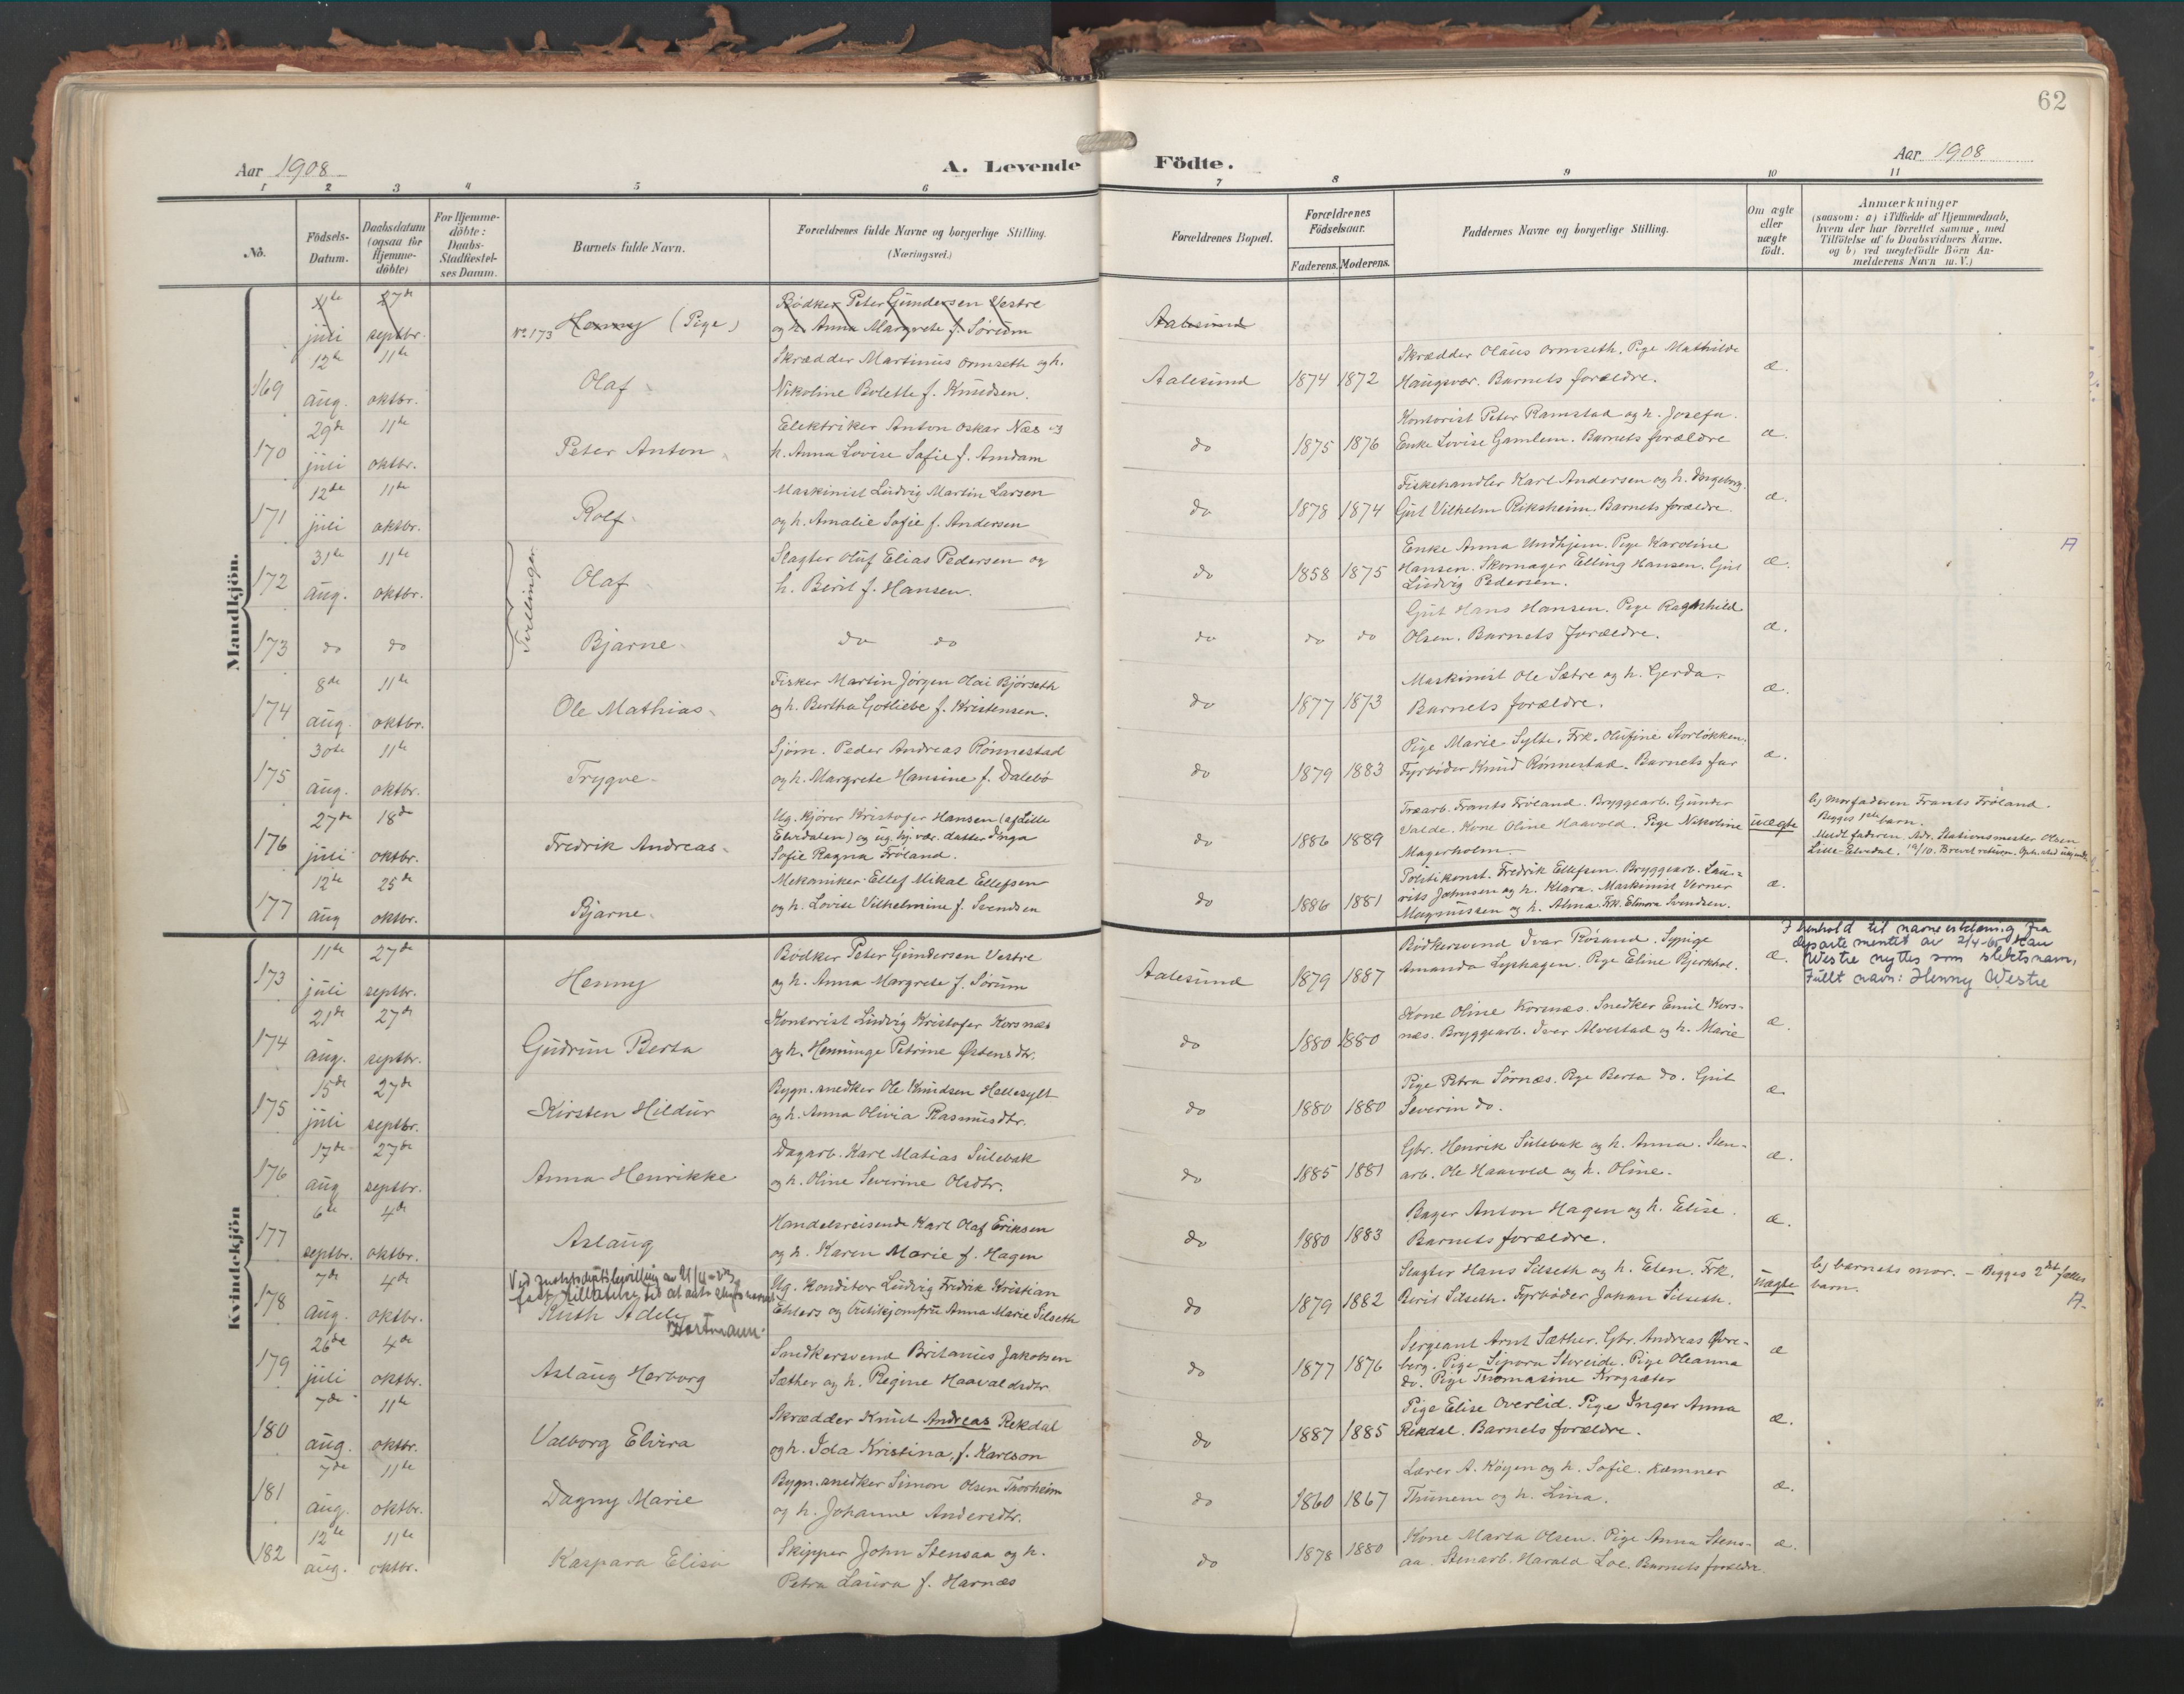 62
Aar 1908
A. Levende
Födte.
Aar 1908
1 2 3 4 5 6 7 8 9 10 11
No.
Födsels-
Datum.
Daabsdatum
(ogsaa for
Hjemme-
döbte)
For Hjemme-
döbte:
Daabs-
Stadfæstel-
ses Datum.
Barnets fulde Navn.
Forældrenes fulde Navne og borgerlige Stilling.
(Næringsvei.)
Forældrenes Bopæl.
Forældrenes
Födselsaar.
Faderens. Moderens.
Faddernes Navne og borgerlige Stilling.
Om ægte
eller
uægte
födt.
Anmærkninger
(saasom: a) i Tilfælde af Hjemmedaab,
hvem der har forrettet samme, med
Tilföielse af to Daabsvidners Navne,
og b) ved uægtefödte Börn An-
melderens Navn m. V.)
Mandkjön.
11te juli
27de septbr.
No 173 Henny (Pige)
Bødker Peter Gundersen Vestre
og h. Anna Margrete f. Sørum
Aalesund
169
12te aug.
11te oktbr.
Olaf
Skrædder Martinus Ormseth og h.
Nikoline Bolette f. Knudsen.
Aalesund
1874 1872
Skrædder Olaus Ormseth. Pige Mathilde
Haugsvær. Barnets forældre.
æ.
170
29de juli
11te oktbr.
Peter Anton
Elektriker Anton Oskar Næs og
h. Anna Lovise Sofie f. Amdam
do
1875 1876
Kontorist Peter Ramstad og h. Josefa.
Enke Lovise Gamlem. Barnets forældre
æ.
171
12te juli
11te oktbr.
Rolf
Maskinist Ludvig Martin Larsen
og h. Amalie Sofie f. Andersen
do
1878 1874
Fiskehandler Karl Andersen og h. Ingeborg.
Gut Vilhelm Riksheim. Barnets forældre.
æ.
Tvillinger
172
31te aug.
11te oktbr.
Olaf
Slagter Oluf Elias Pedersen og
h. Berit f. Hansen.
do
1858 1875
Enke Anna Undhjem. Pige Karoline
Hansen. Skomager Elling Hansen. Gut
Ludvig Pedersen.
æ.
A
173
do
do
Bjarne
do do
do
do do
Gut Hans Hansen. Pige Ragnhild
Olsen. Barnets forældre.
æ.
174
8de aug.
11te oktbr.
Ole Mathias
Fisker Martin Jørgen Olai Bjørseth
og h. Bertha Gotliebe f. Kristensen.
do
1877 1873
Maskinist Ole Sætre og h. Gerda.
Barnets forældre.
æ.
175
30te aug.
11te oktbr.
Trygve
Sjøm. Peder Andreas Rønnestad
og h. Margrete Hansine f. Dalebø
do
1879 1883
Pige Marie Sylte. Frk. Olufine Storløkken.
Fyrbøder Knud Rønnestad. Barnets far
æ.
176
27de juli
18de oktbr.
Fredrik Andreas
Ug. kjører Kristofer Hansen (af Lille
Elvedalen) og ug. hj.vær. datter Inga
Sofie Ragna Frøland.
do
1886 1889
Træarb. Frants Frøland. Bryggearb. Gunder
Valde. Kone Oline Haavold. Pige Nikoline
Magerholm
uægte
b) morfaderen Frants Frøland.
Begges 1ste barn.
Medt faderen. Adr. Stationsmester Olsen
Lille-Elvedal. 19/10. Brevet return.
177
12te aug
25de oktbr.
Bjarne
Mekaniker Ellef Mikal Ellefsen
og h. Lovise Vilhelmine f. Svendsen
do
1886 1881
Politikonst. Fredrik Ellefsen. Bryggearb. Lau-
rits Johnsen og h. Klara. Maskinist Verner
Magnussen og h. Alma. Frk. Elinora Svendsen.
æ.
Kvindekjön
173
11te juli
27de septbr.
Henny
Bødker Peter Gundersen Vestre
og h. Anna Margrete f. Sørum
Aalesund
1879 1887
Bødkersvend Ivar Røsand. Sypige
Amanda Lyshagen. Pige Eline Bjerkhol.
æ.
I henhold til navneerklæring fra
departementet av 2/4-65 kan
Westre nyttes som slektsnavn.
Fullt navn: Henny Westre
174
21de aug.
27de septbr.
Gudrun Berta
Kontorist Ludvig Kristofer Korsnæs
og h. Henninge Petrine Østensdtr.
do
1880 1880
Kone Oline Korsnæs. Snedker Emil Kors-
næs. Bryggearb. Iver Alvestad og h. Marie
æ.
175
15de juli
27de septbr.
Kirsten Hildur
Bygn. snedker Ole Knudsen Hellesylt
og h. Anna Olivia Rasmusdtr.
do
1880 1880
Pige Petra Sørnæs. Pige Berta do. Gut
Severin do.
æ.
176
17de aug
27de septbr.
Anna Henrikke
Dagarb. Karl Matias Sulebak
og h. Oline Severine Olsdtr.
do
1885 1881
Gbr. Henrik Sulebak og h. Anna. Sten-
arb. Ole Haavold og h. Oline.
æ.
177
6te septbr.
4de oktbr.
Aslaug
Handelsreisende Karl Olaf Eriksen
og h. Karen Marie f. Hagen
do
1880 1883
Bager Anton Hagen og h. Elise.
Barnets forældre.
æ.
178
7de aug.
4de oktbr.
Ruth Adele
Hartmann.
Ug. Konditor Ludvig Fredrik Kristian
Ehlers og Butikjomfru Anna Marie Silseth
do
1879 1882
Slagter Hans Silseth og h. Elen. Frk.
Berit Silseth. Fyrbøder Johan Silseth.
uægte
b) barnets mor. – Begges 2det fælles
barn.
A.
179
26de juli
4de oktbr.
Aslaug Herborg
Snedkersvend Britanius Jakobsen
Sæther og h. Regine Haavaldsdtr.
do
1877 1876
Sergeant Arnt Sæther. Gbr. Andreas Øvre-
berg. Pige Sipora Storeide. Pige Oleanna
do. Pige Thomasine Krogsæter
æ
180
7de aug.
11te oktbr.
Valborg Elvira
Skrædder Knut Andreas Rekdal
og h. Ida Kristina, f. Karlson
do
1887 1885
Pige Elise Overlid. Pige Inger Anna
Rekdal. Barnets forældre.
æ.
181
7de aug.
11te oktbr.
Dagny Marie
Bygn. snedker Simon Olsen Thorheim
og h. Johanne Andersdtr.
do
1860 1867
Lærer A. Køyen og h. Sofie. Kæmner
Thunem og h. Lina.
æ.
182
12te aug.
11te oktbr.
Kaspara Elise
Skipper John Stensaa og h.
Petra Laura f. Harnæs
do
1878 1880
Kone Marta Olsen. Pige Anna Stens-
aa. Stenarb. Harald Loe. Barnets forældre
æ.